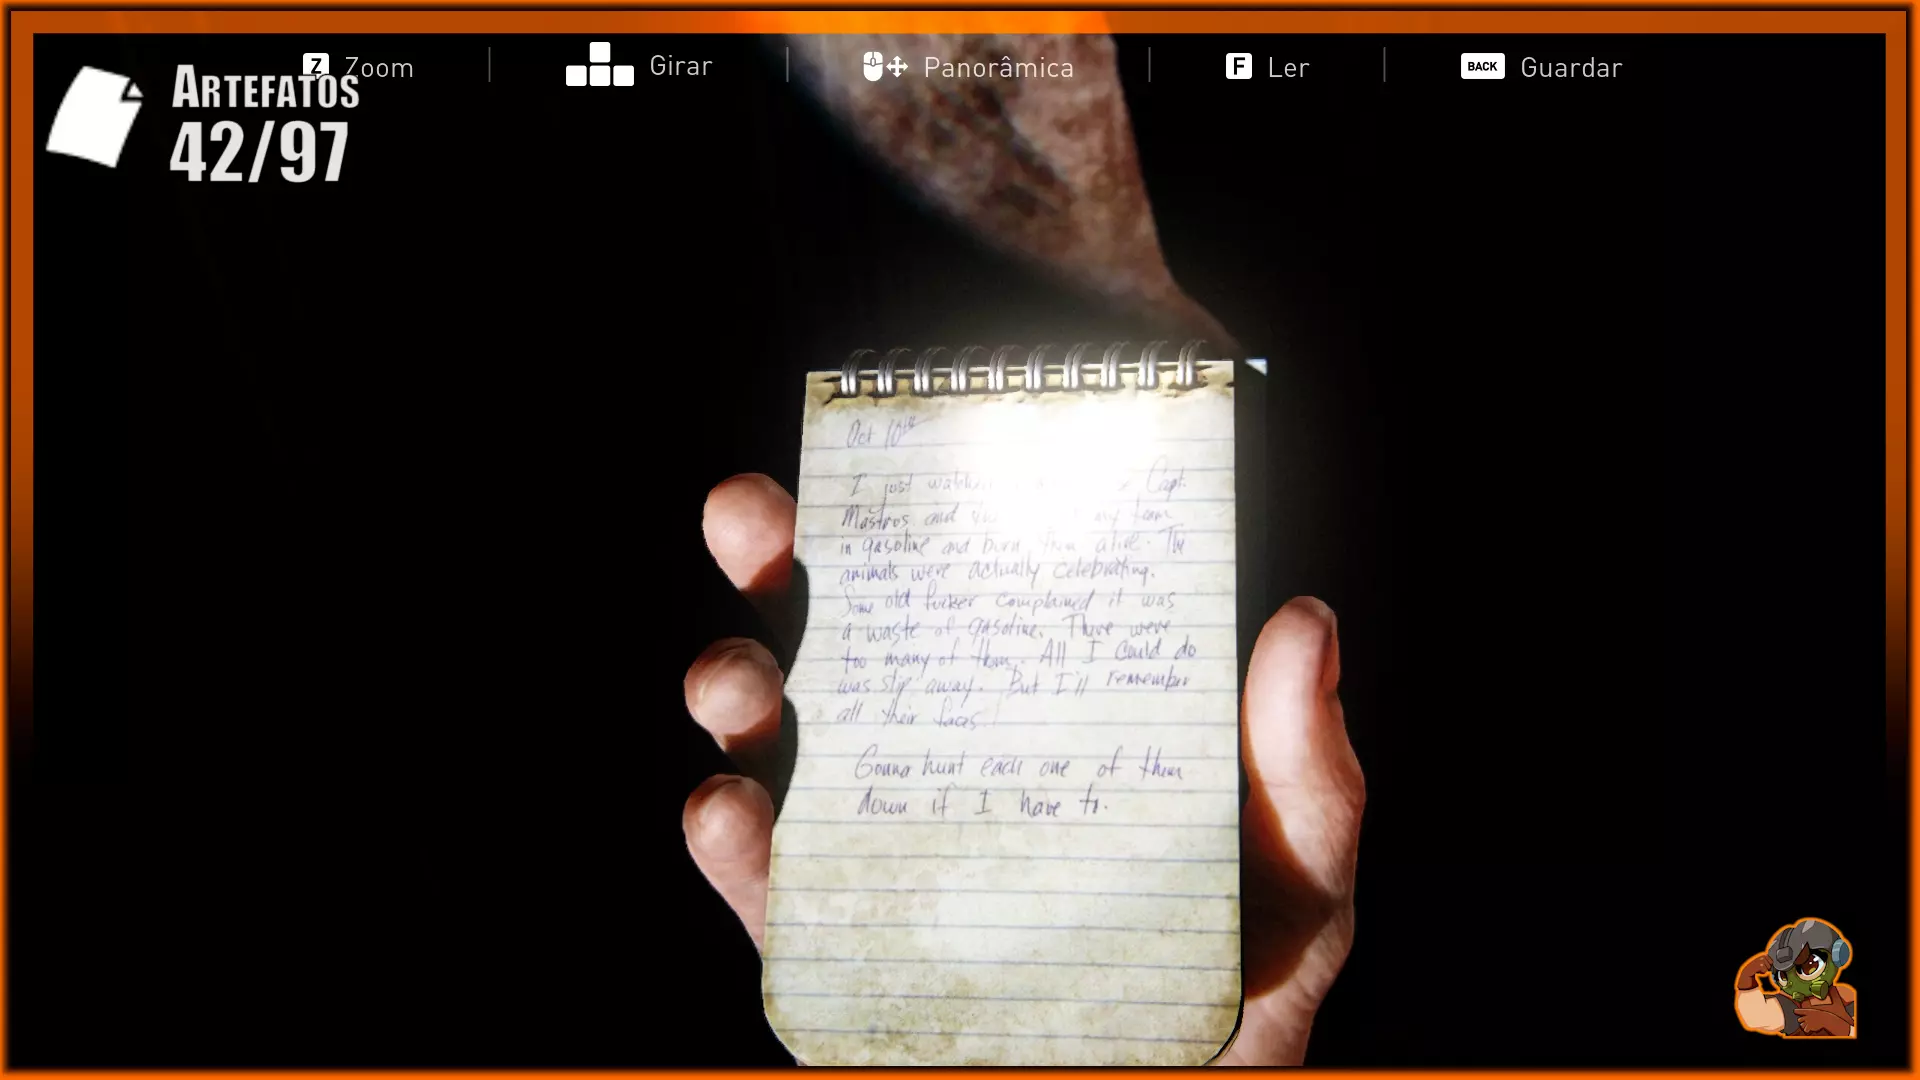 Z Zoom
Girar
Panorâmica
F Ler
BACK Guardar
ARTEFATOS
42/97
Oct 10th
I just Capt.
Mastros and my team
in gasoline and burn them alive. The
animals were actually celebrating.
Some old fucker complained it was
a waste of gasoline. There were
too many of them. All I could do
was slip away. But I'll remember
all their faces.
Gonna hunt each one of them
down if I have to.